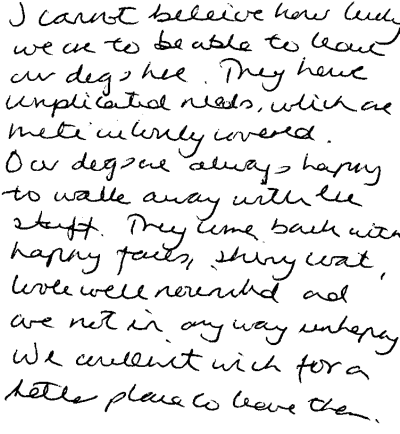 I cannot beleive how lucky
we are to be able to leave
our dogs here. They have
complicated needs, which are
meticulously covered.
Our dogs are always happy
to walk away with the
staff. They come back with
happy faces, shiny coat,
look well nourished and
are not in any way unhappy
We couldn't wish for a
better place to leave them.